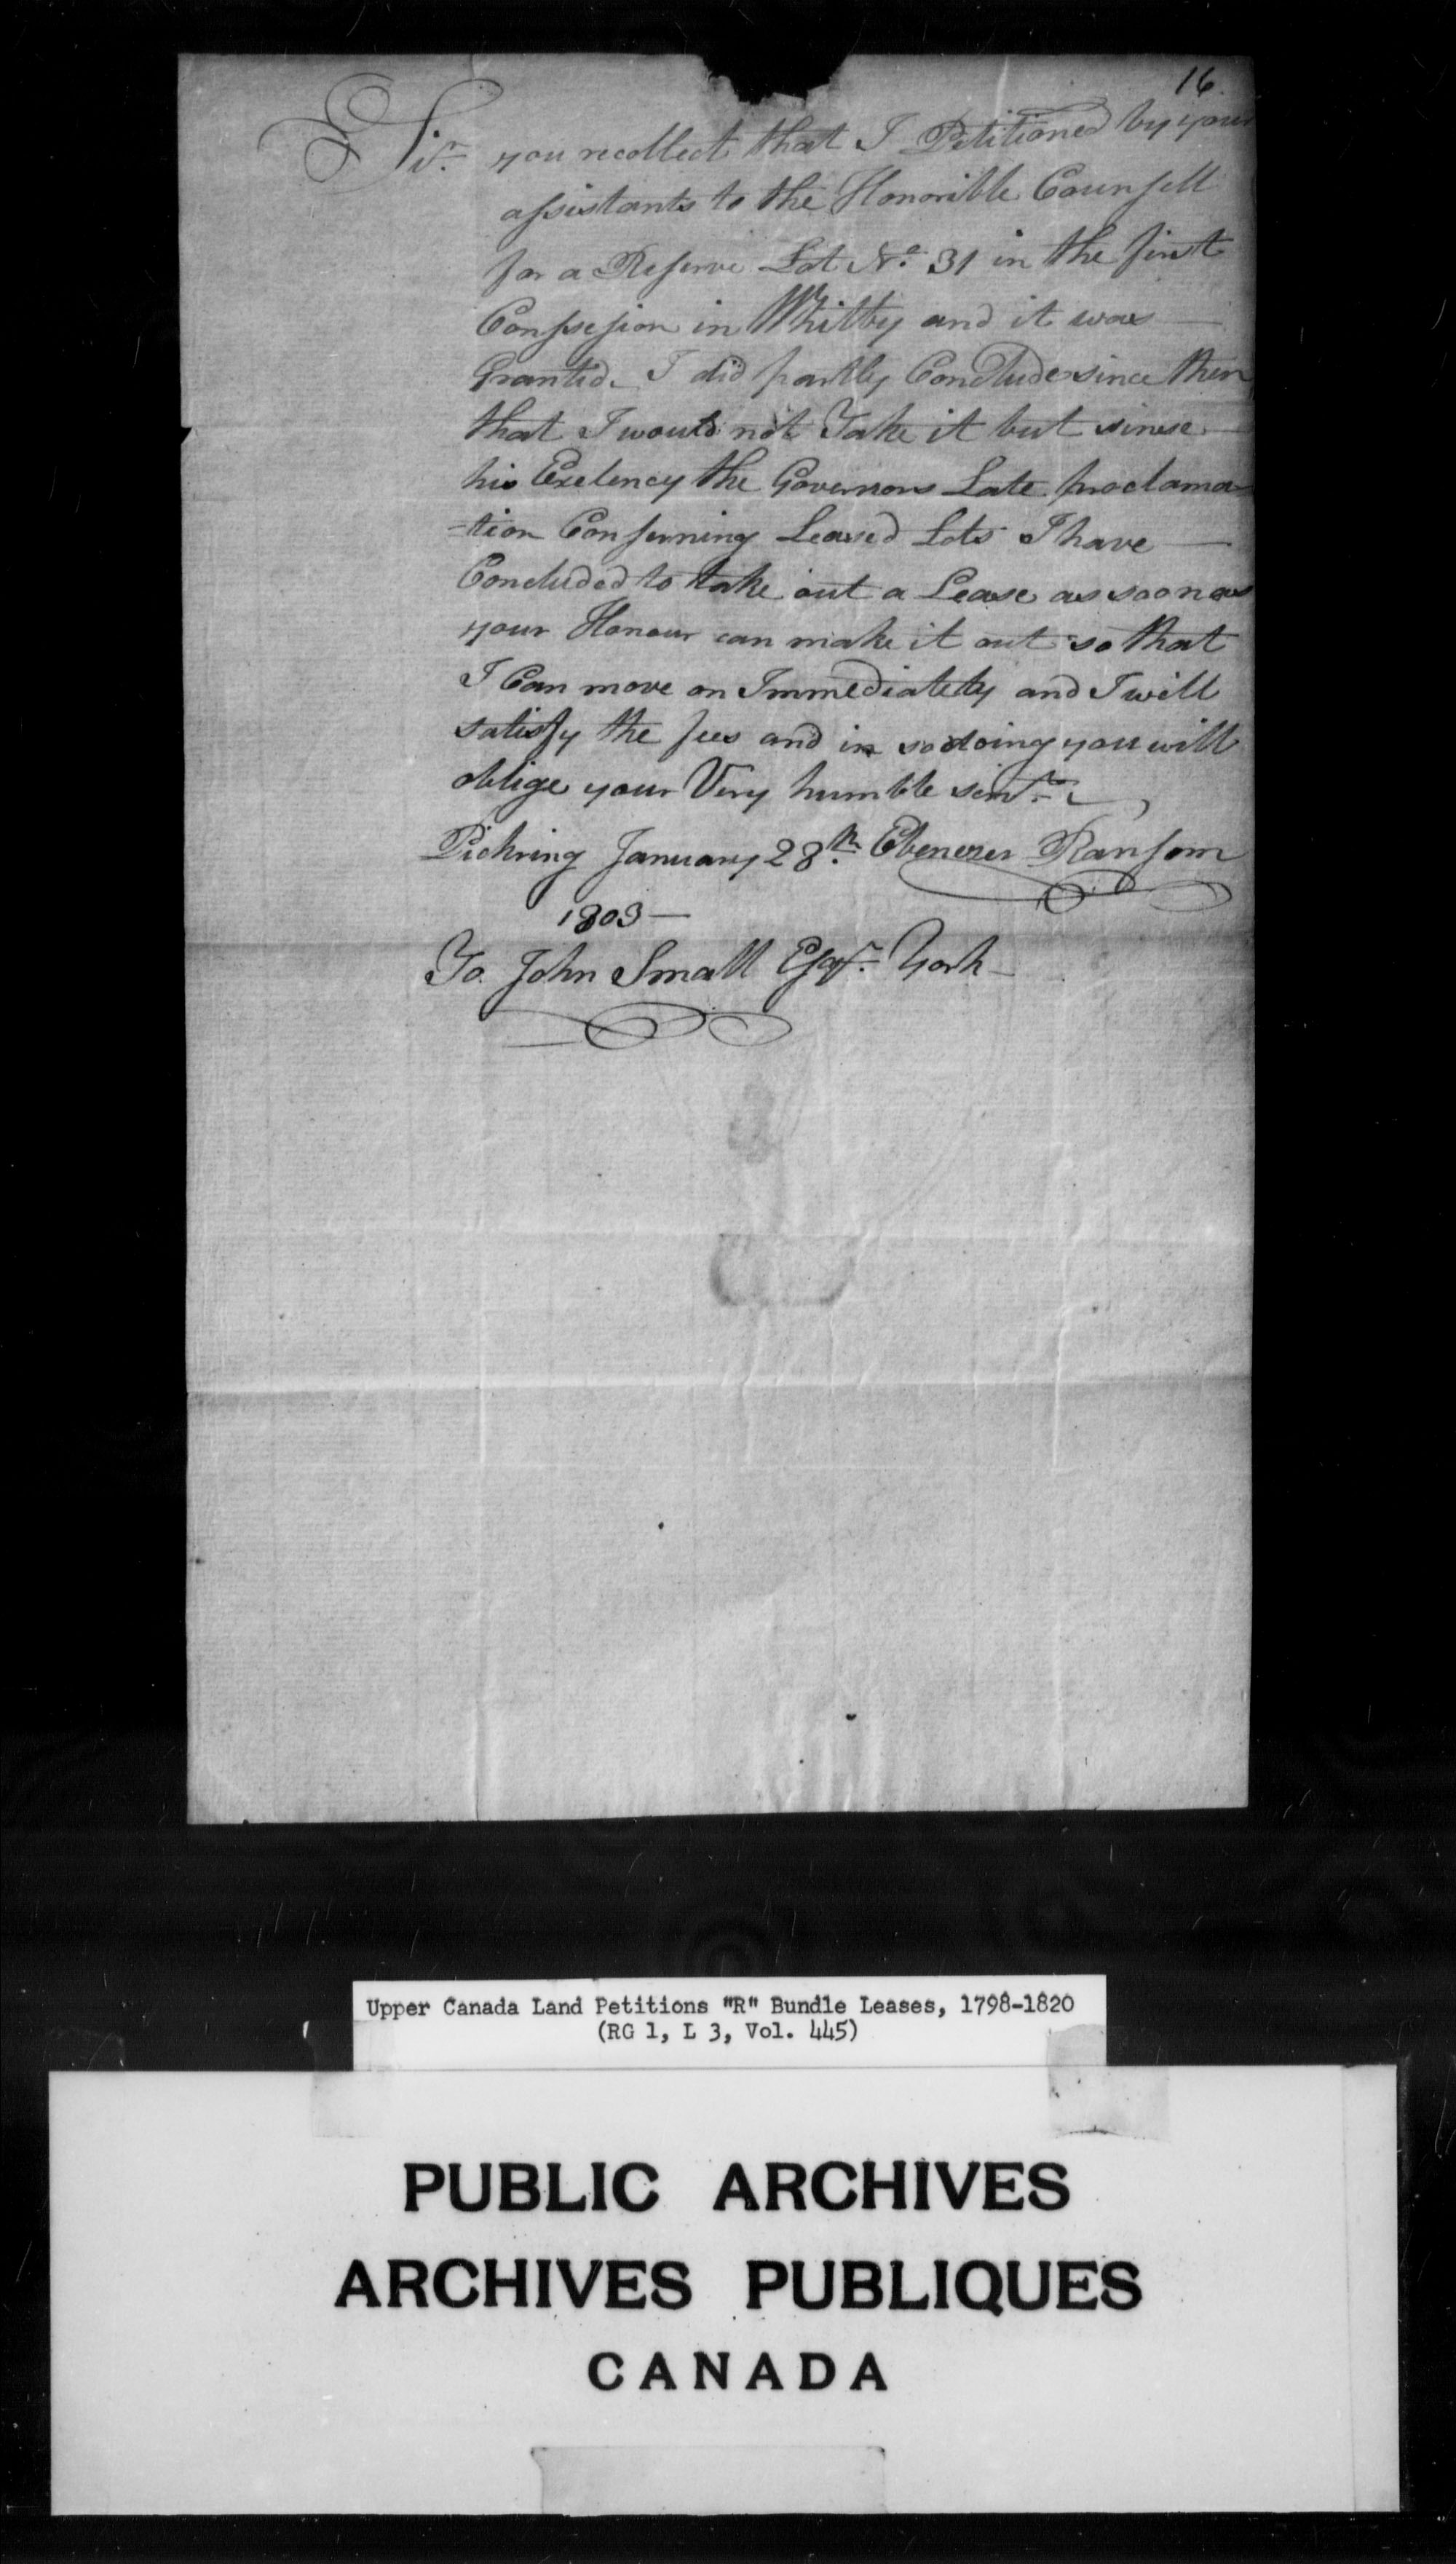 16.
Sir. you recollect that I Petitioned by your
assistants to the Honorible Counsell
for a Reserve Lot No. 31 in the first
Conssession in Whitby and it was —
Granted. I did partly Conclude since then
that I would not Take it but sinese —
his Exelency the Governors Late proclama-
-tion Conserning Leased Lots I have —
Concluded to take out a Lease as soon as
your Honour can make it out so that
I Can move on Immediately and I will
satisfy the fees and in so doing you will
oblige your Very humble servt.
Pickring January 28th. Ebenezer Ransom
1803 —
To. John Small Esqr. York —
Upper Canada Land Petitions "R" Bundle Leases, 1798-1820
(RG 1, L 3, Vol. 445)
PUBLIC ARCHIVES
ARCHIVES PUBLIQUES
CANADA